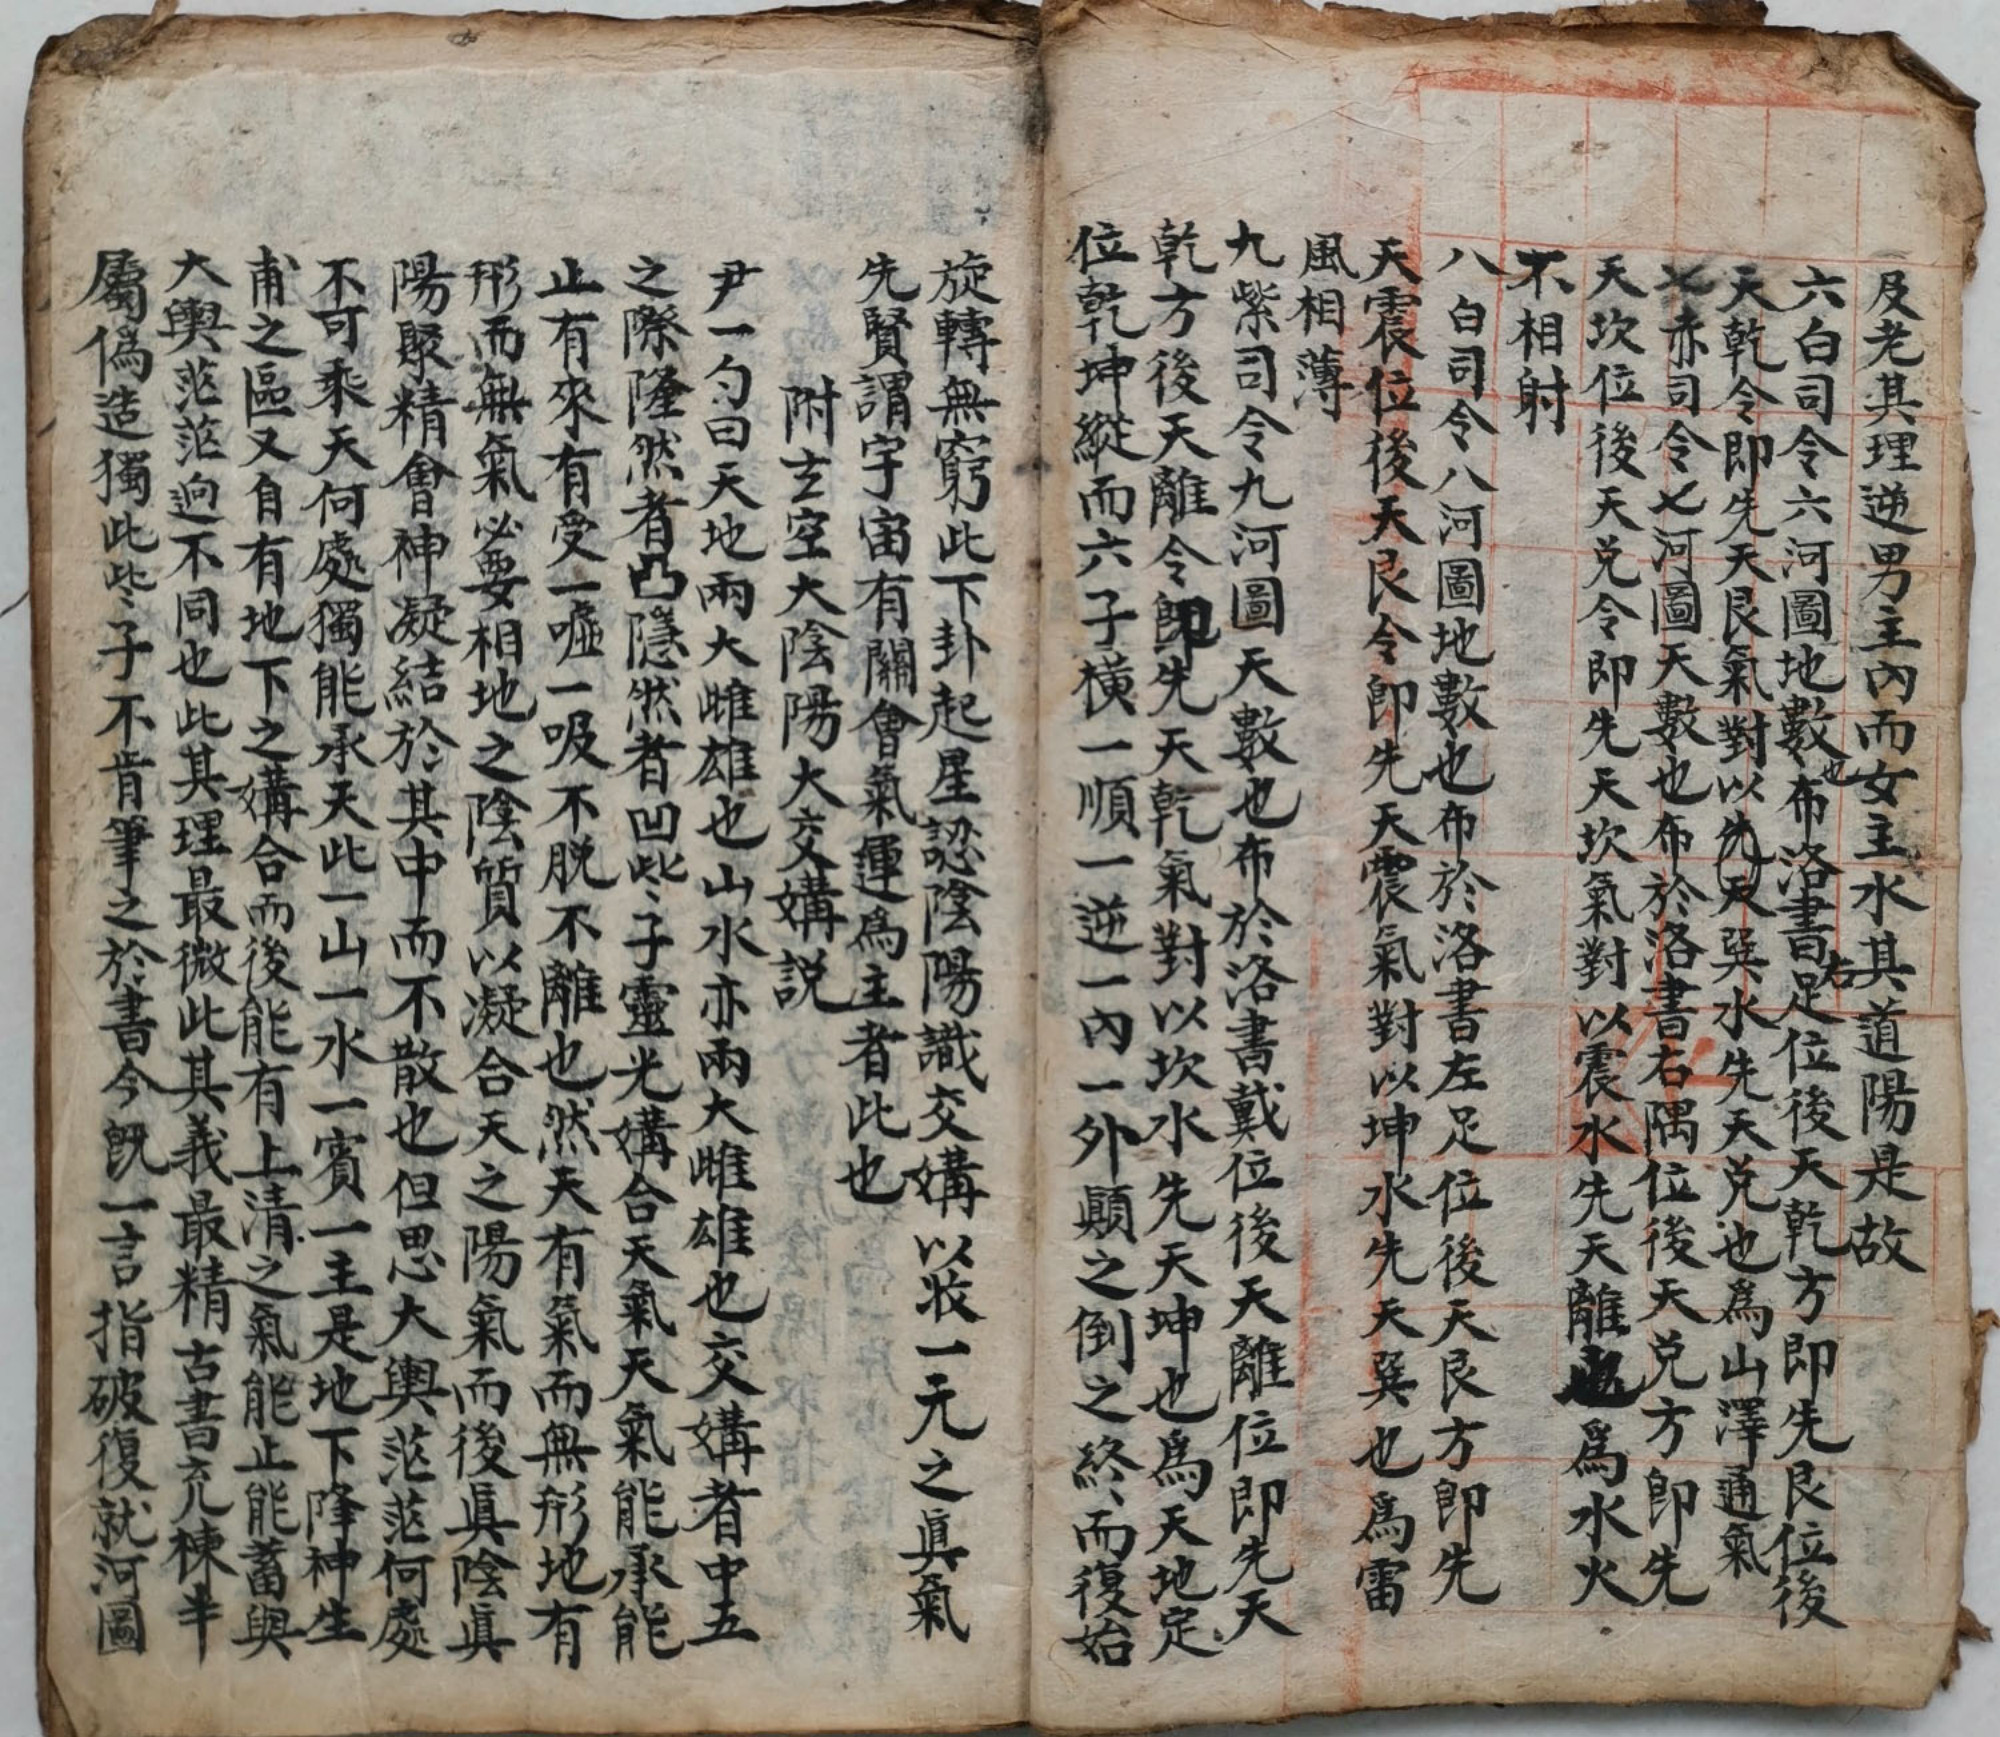 及老其理逆男主內而女主水其道陽是故
六白司令六河圖地數也布洛書右足位後天乾方即先艮位後
天乾令即先天艮氣對以先天巽水先天兌也為山澤通氣
七赤司令七河圖天數也布於洛書右隅位後天兌方即先
天坎位後天兌令即先天坎氣對以震水先天離也為水火
不相射
八白司令八河圖地數也布於洛書左足位後天艮方即先
天震位後天艮令即先天震氣對以坤水先天巽也為雷
風相薄
九紫司令九河圖天數也布於洛書戴位後天離位即先天
乾方後天離令即先天乾氣對以坎水先天坤也為天地定
位乾坤縱而六子橫一順一逆一內一外顛之倒之終而復始
旋轉無窮此下卦起星認陰陽識交媾以收一元之真氣
先賢謂宇宙有關會氣運為主者此也
附玄空大陰陽大交媾說
尹一勺曰天地兩大雌雄也山水亦兩大雌雄也交媾者中五
之際隆然者凸隱然者凹些些子靈光媾合天氣天氣能承能
止有來有受一噓一吸不脫不離也然天有氣而無形地有
形而無氣必要相地之陰質以凝合天之陽氣而後真陰真
陽聚精會神凝結於其中而不散也但思大輿茫茫何處
不可乘天何處獨能承天此一山一水一賓一主是地下降神生
甫之區又自有地下之媾合而後能有上清之氣能止能蓄與
大輿茫茫逈不同也此其理最微此其義最精古書充棟半
屬偽造獨此些子不肯筆之於書今既一言指破復就河圖